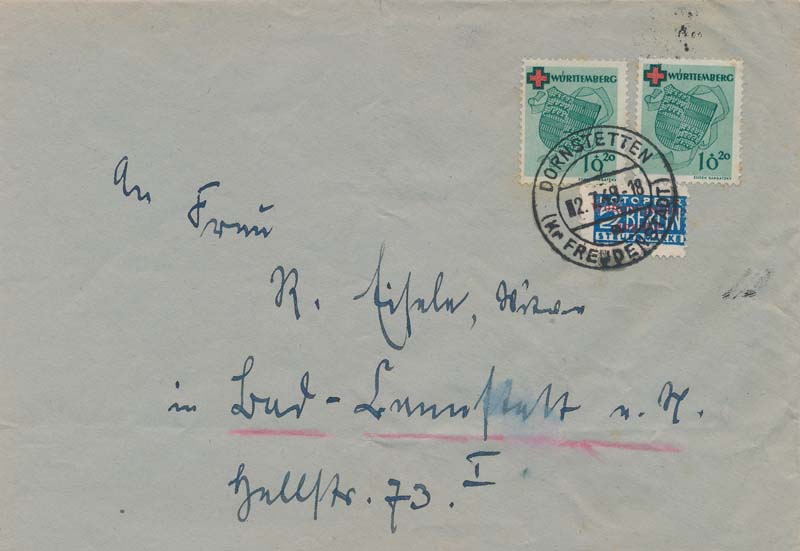 WÜRTTEMBERG WÜRTTEMBERG
10 20 10 20
DORNSTETTEN
2.7.49-18
(Kr FREUDENSTADT)
NOTOPFER
2 BERLIN
STEUERMARKE
An
Frau
R. Eisele, Witwe
in Bad-Cannstatt a. N.
Hallstr. 73. I